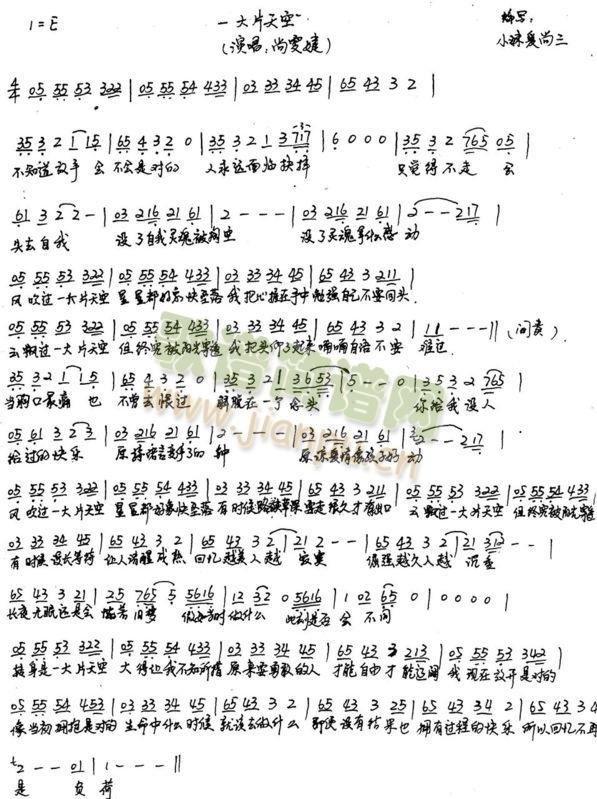 1=E 一大片天空 编写:
(演唱:尚雯婕) 小咪爱尚三
4/4 05 55 53 322 | 05 55 54 433 | 03 33 34 45 | 65 43 3 2 |
35 3 2 1 15 | 65 4 3 2 0 | 35 3 2 1 3 717 | 6 0 0 0 | 35 3 2 765 05 |
不知道放手 会 不会是对的 人永远面临抉择 只觉得不走 会
61 3 2 2 - | 03 216 21 61 | 2 - - - | 03 216 21 61 | 2 - - 217 |
失去自我 没了自我灵魂被掏空 没了灵魂拿什么感 动
05 55 53 322 | 05 55 54 433 | 03 33 34 45 | 65 43 3 211 |
风吹过一大片天空 星星都 快坠落 我把心握在手中 勉强自己不要回头
05 55 53 322 | 05 55 54 433 | 03 33 34 45 | 65 43 3 2 | 11 - - - || (间奏)
云飘过一大片天空 但终究被阳光穿透 我把头仰了起来 喃喃自语不要 难过
35 3 2 1 15 | 65 4 3 2 0 | 35 3 21 3653 | 5 - - 0 | 35 3 2 765 |
当胸口最痛 也 不曾去恨过 解脱在一个念头 你给我没人
05 61 3 2 3 | 03 216 21 61 | 2 - - - | 03 216 21 61 | 2 - - 217 |
给过的快乐 原 种 原 动
05 55 53 322 | 05 55 54 433 | 03 33 34 45 | 65 43 3 211 | 05 55 53 322 | 05 55 54 433 |
风吹过一大片天空 星星都 快坠落 有时候 很久才有出口 云飘过一大片天空 但终究被阳光穿透
03 33 34 45 | 65 43 3 2 | 65 43 3 2 | 21 2 - - | 65 43 3 2 | 21 312 - - |
有时候漫长等待 让人清醒成熟 回忆越美人越 现实 倔强越久人越 沉重
65 43 3 21 | 25 765 5 5616 | 12 32 0 5616 | 1 02 65 0 | 0 0 0 0 |
长夜无眠还是会 旧梦 做什么 此刻是否 会 不同
05 55 53 322 | 05 55 54 433 | 03 33 34 45 | 65 43 3 213 | 05 55 53 342 |
转身是一大片天空 大得让我不知所措 原来要勇敢的人 才能自由才能辽阔 我现在放开是对的
05 55 54 453 | 03 33 34 45 | 65 43 3 2 | 65 43 3 25 | 65 43 34 2 | 65 43 3 4
像当初拥抱是对的 生命中什么时候 就该去做什么 即使没有结果也 拥有过程的快乐 所以回忆不再
2 - - 01 | 1 - - - ||
是 负荷
歌谱简谱网
www.jianpu.cn